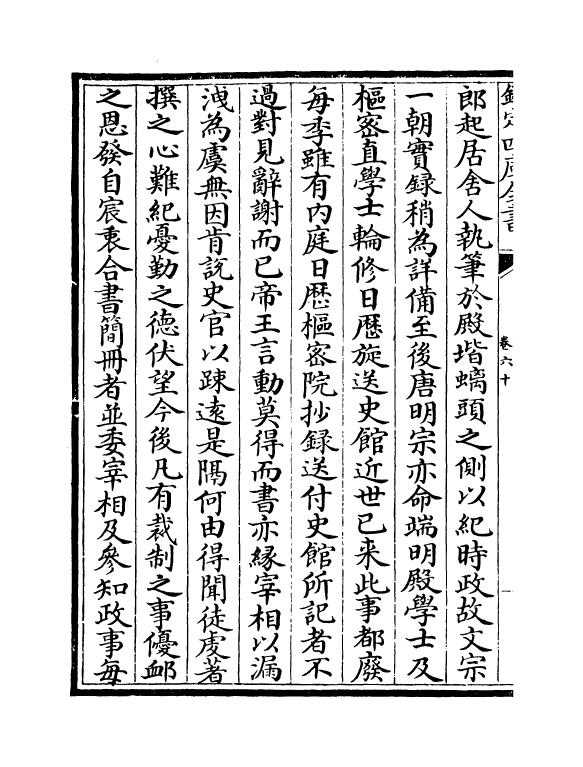 欽定四庫全書
卷六十
郎起居舍人執筆於殿堦螭頭之側以紀時政故文宗
一朝實録稍為詳備至後唐明宗亦命端明殿學士及
樞宻直學士輪修日厯旋送史館近世已来此事都廢
每季雖有内庭日厯樞宻院抄録送付史館所記者不
過對見辭謝而已帝王言動莫得而書亦縁宰相以漏
洩為虞無因肯説史官以踈逺是隔何由得聞徒䖍著
撰之心難紀憂勤之德伏望今後凡有裁制之事優䘏
之恩發自宸衷合書簡冊者並委宰相及參知政事每